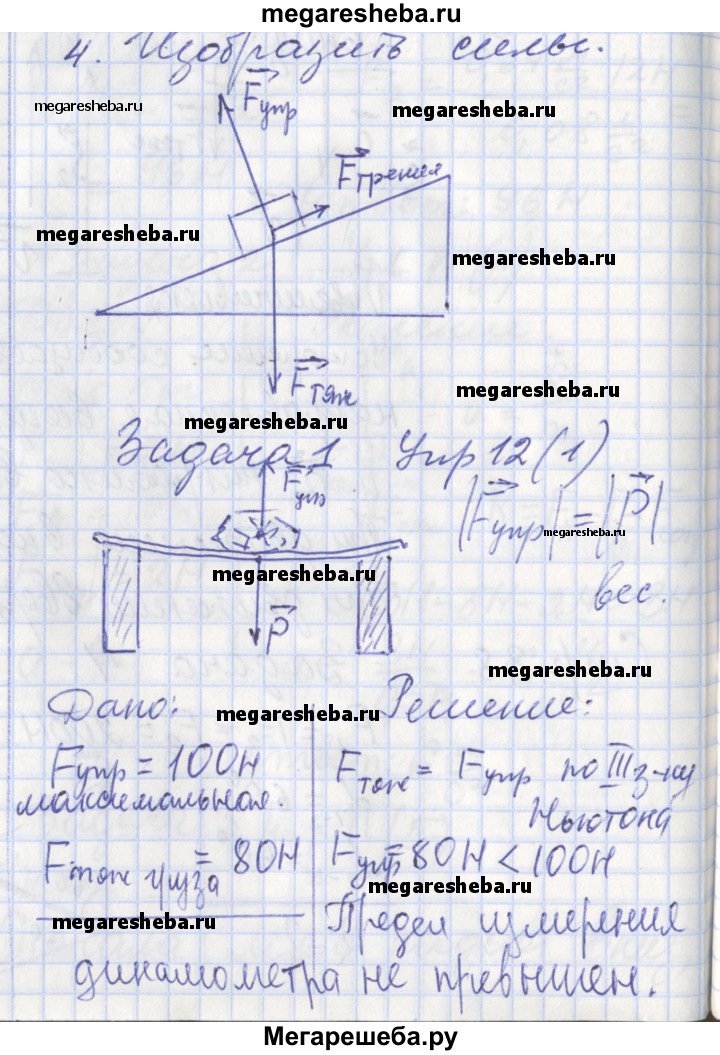 megaresheba.ru
4. Изобразить силы.
Fупр
megaresheba.ru
megaresheba.ru
Fтрения
megaresheba.ru
megaresheba.ru
Fтяж
megaresheba.ru
megaresheba.ru
Задача 1 Упр 12 (1)
Fупр
|Fупр| = |P|
megaresheba.ru
megaresheba.ru
вес.
P
megaresheba.ru
Дано: Решение:
megaresheba.ru
Fупр = 100Н
максимальная.
Fтяж = Fупр по III з-ну
Ньютона
Fтяж груза = 80Н
Fупр = 80Н < 100Н
megaresheba.ru
megaresheba.ru
Предел измерения
динамометра не превышен.
Мегарешеба.ру